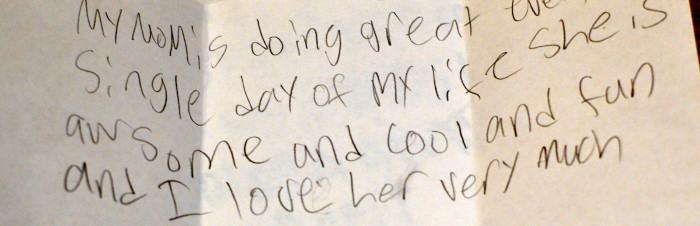 My Mom is doing great eve
Single day of My life She is
awsome and cool and fun
and I love her very much